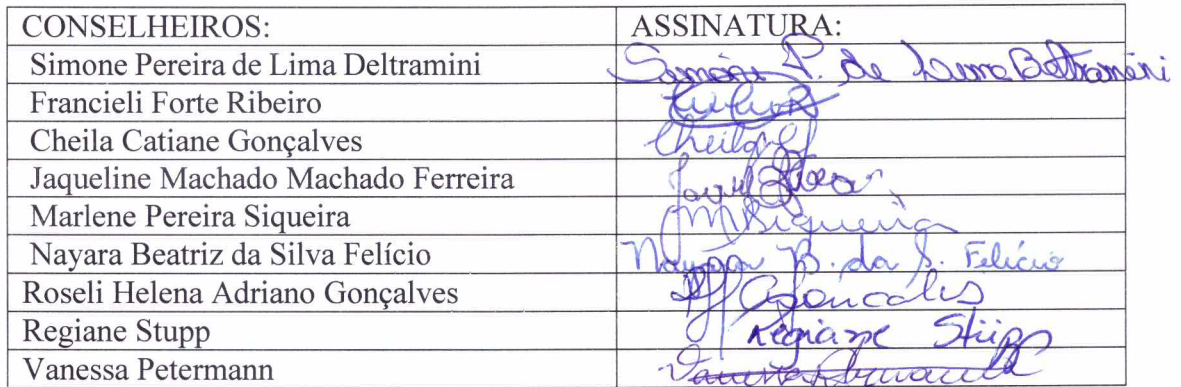 CONSELHEIROS: ASSINATURA:
Simone Pereira de Lima Deltramini Simone P. de Lima Beltramini
Francieli Forte Ribeiro
Cheila Catiane Gonçalves Cheila
Jaqueline Machado Machado Ferreira
Marlene Pereira Siqueira MSiqueira
Nayara Beatriz da Silva Felício Nayara B. da S. Felício
Roseli Helena Adriano Gonçalves Goncalves
Regiane Stupp Regiane Stüpp
Vanessa Petermann Vanessa